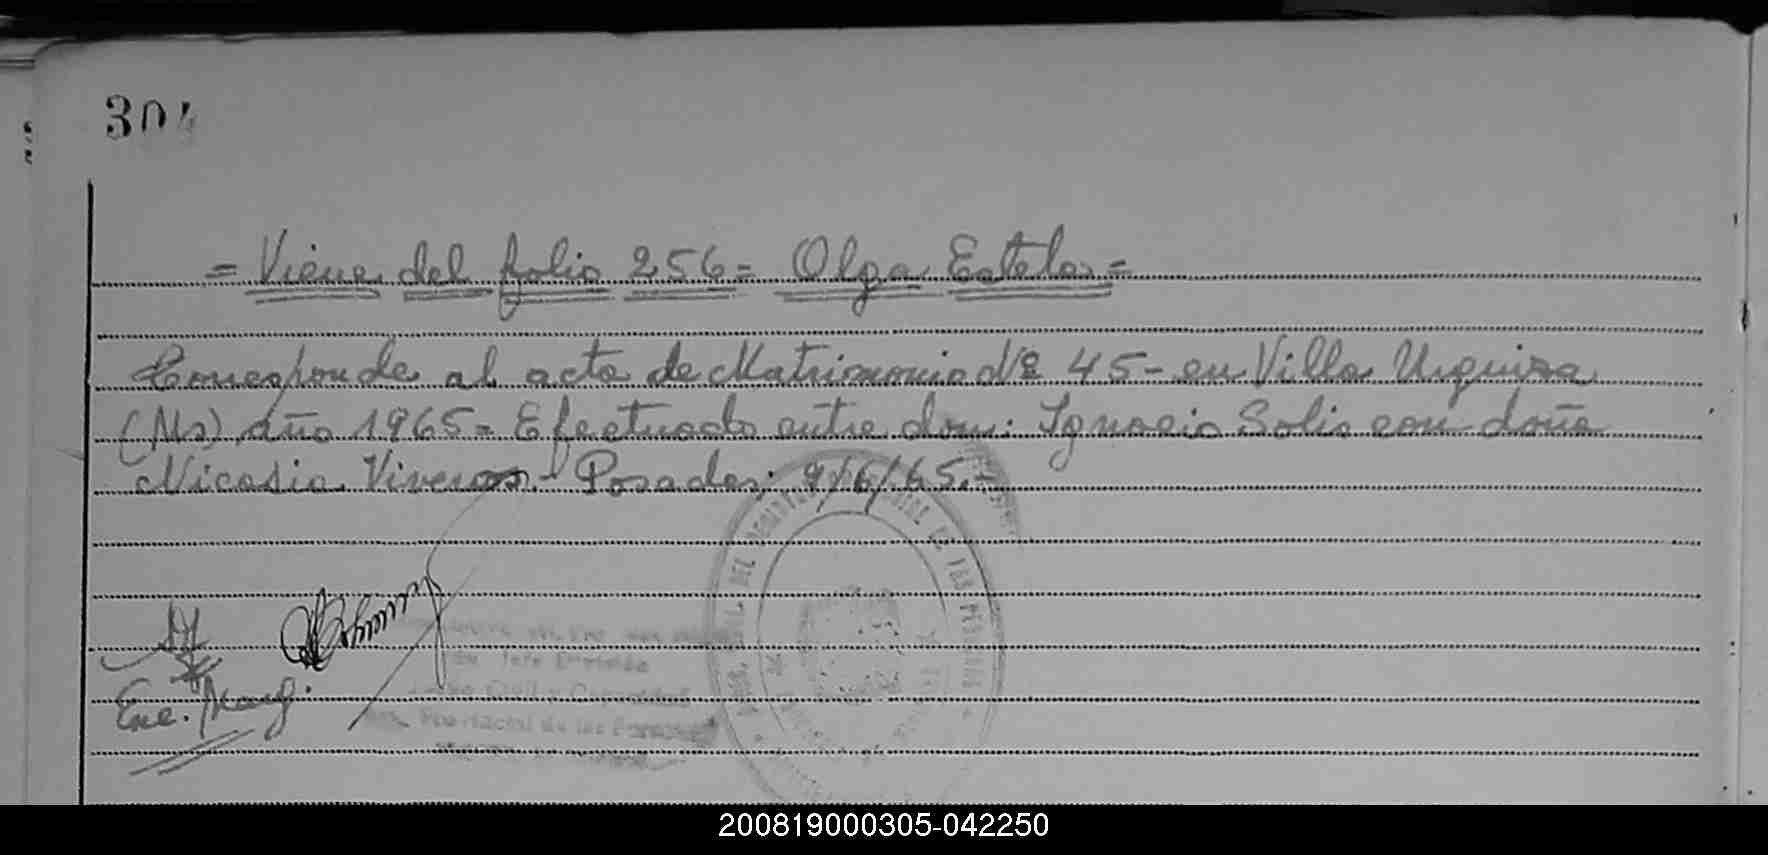 304
= Viene del folio 256 = Olga Estela =
Corresponde al acta de Matrimonio Nº 45 - en Villa Urquiza
(Ms) año 1965 = Efectuado entre don: Ignacio Solis con doña
Nicasia Viveros.- Posadas: 9/6/65.-
Enc. Marg.
Jefe División
Civil y Capacidad
Provincial de las Personas
DEL PROVINCIAL DE LAS PERSONAS
200819000305-042250